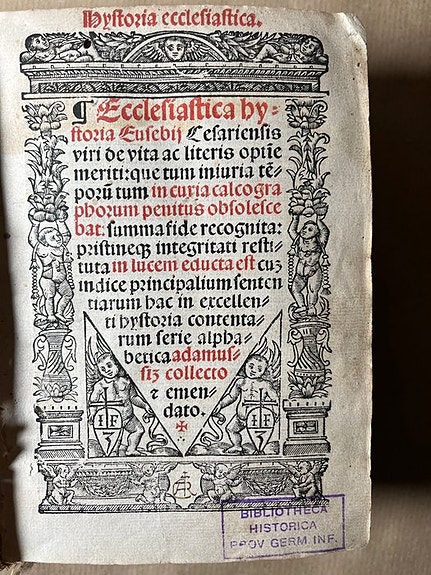 Hystoria ecclesiastica.
¶ Ecclesiastica hy-
storia Eusebij Cesariensis
viri de vita ac literis optĩe
meriti: que tum iniuria tē-
porũ tum in curia calcogra
phorum penitus obsolesce
bat: summa fide recognita:
pristineqȝ integritati resti-
tuta in lucem educta est cuȝ
indice principalium senten
tiarum hac in excellen-
ti hystoria contenta-
rum serie alpha-
betica adamus-
siȝ collecto
⁊ emen-
dato.
I F
I F
BIBLIOTHECA
HISTORICA
PROV GERM. INF.